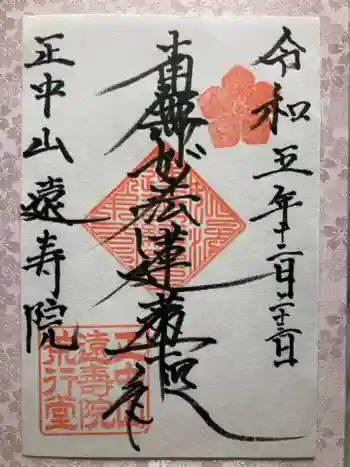 令和五年十二月二十三日
南無妙法蓮華経
正中山遠寿院
正中山
遠壽院
荒行堂